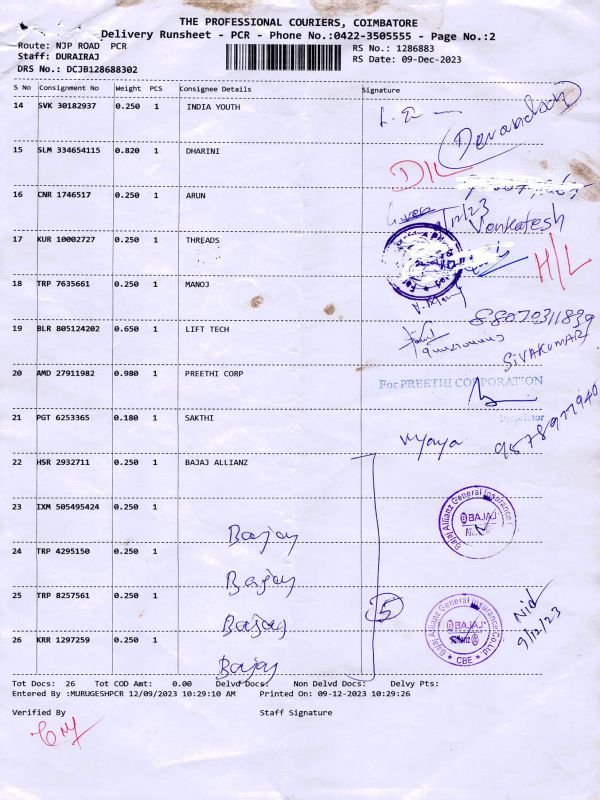 THE PROFESSIONAL COURIERS, COIMBATORE
Delivery Runsheet - PCR - Phone No.:0422-3505555 - Page No.:2
Route: NJP ROAD PCR
RS No.: 1286883
Staff: DURAIRAJ
RS Date: 09-Dec-2023
DRS No.: DCJB128688302
S No Consignment No Weight PCS Consignee Details Signature
14 SVK 30182937 0.250 1 INDIA YOUTH
15 SLM 334654115 0.820 1 DHARINI
16 CNR 1746517 0.250 1 ARUN
9/12/23 Venkatesh
17 KUR 10002727 0.250 1 THREADS
H/L
18 TRP 7635661 0.250 1 MANOJ
19 BLR 805124202 0.650 1 LIFT TECH
SIVAKUMAR
20 AMD 27911982 0.980 1 PREETHI CORP
For PREETHI CORPORATION
Proprietor
21 PGT 6253365 0.180 1 SAKTHI
9578977940
22 HSR 2932711 0.250 1 BAJAJ ALLIANZ
23 IXM 505495424 0.250 1
Bajaj Allianz General Insurance
BAJAJ
Bajaj
24 TRP 4295150 0.250 1
Bajaj
25 TRP 8257561 0.250 1
5
Bajaj Allianz General Insurance Co. Ltd
BAJAJ
CBE
9/12/23
Bajaj
26 KRR 1297259 0.250 1
Bajaj
Tot Docs: 26 Tot COD Amt: 0.00 Delvd Docs: Non Delvd Docs: Delvy Pts:
Entered By :MURUGESHPCR 12/09/2023 10:29:10 AM Printed On: 09-12-2023 10:29:26
Verified By Staff Signature